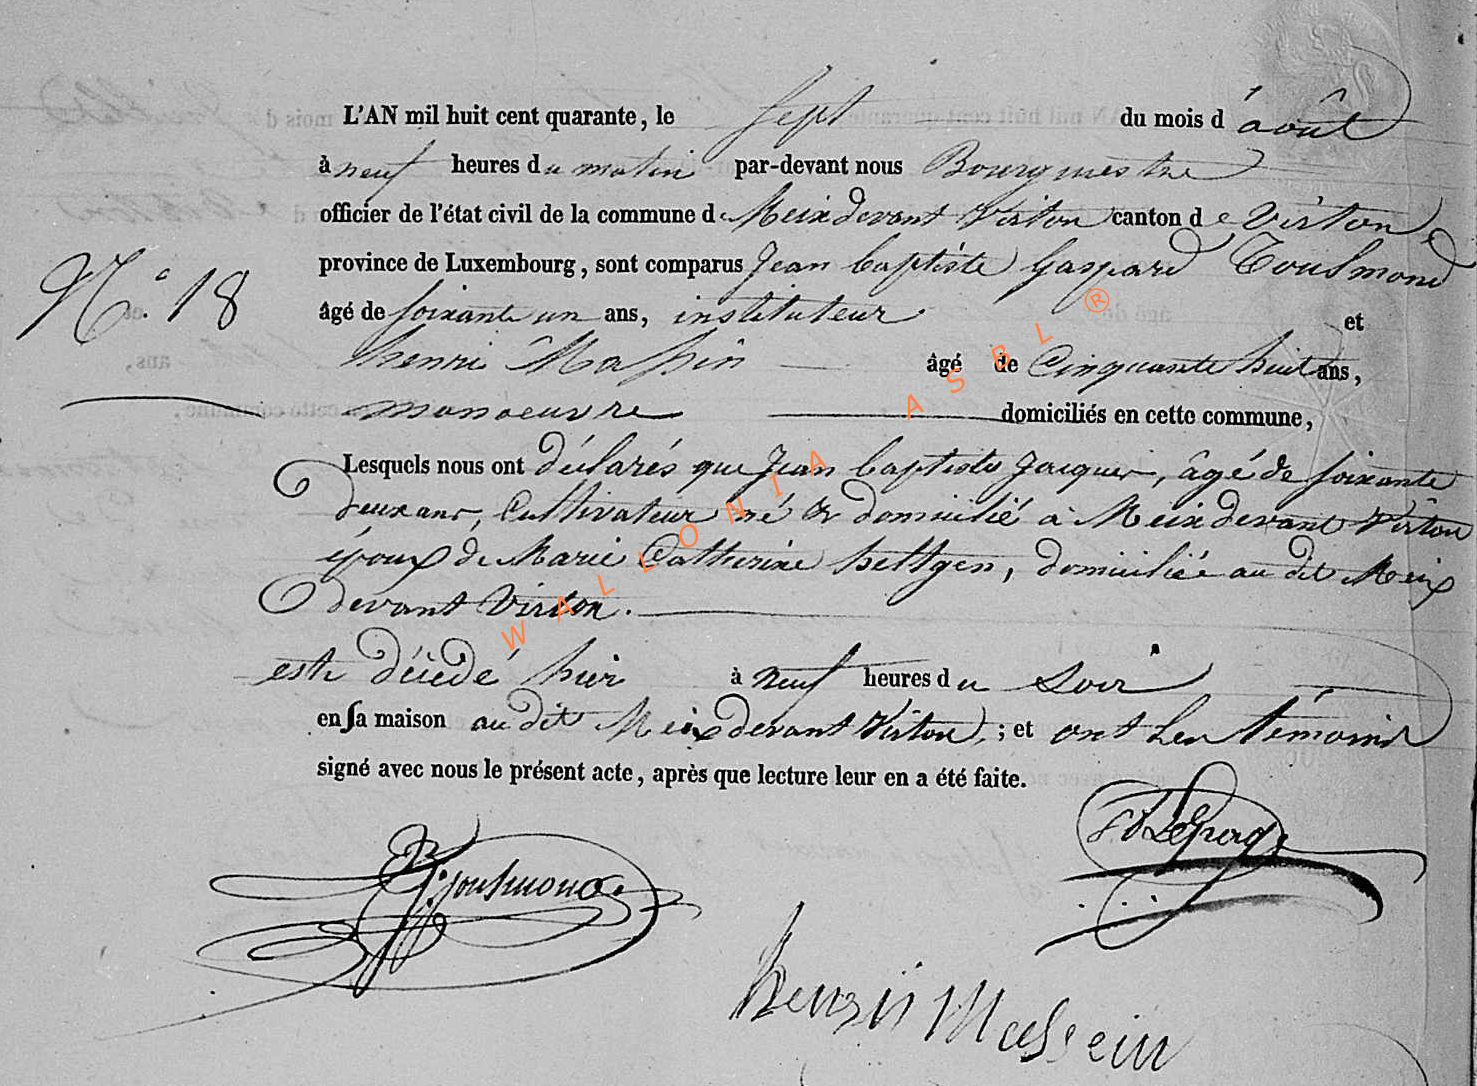 L'AN mil huit cent quarante, le sept du mois d'août
à neuf heures du matin par-devant nous Bourgmestre
officier de l'état civil de la commune de Meix devant Virton canton de Virton,
province de Luxembourg, sont comparus Jean baptiste Gaspard Tousmond
N.° 18
âgé de soixante un ans, instituteur et
henri Massin âgé de Cinquante huit ans,
manoeuvre domiciliés en cette commune,
Lesquels nous ont déclarés que Jean baptiste Jacques, âgé de soixante
deux ans, Cultivateur né & domicilié à Meix devant Virton
époux de Marie Catherine hettgen, domiciliée au dit Meix
devant Virton.
est décédé hier à neuf heures du soir
en sa maison au dit Meix devant Virton, ; et ont les témoins
signé avec nous le présent acte, après que lecture leur en a été faite.
henri Massein
WALLONIA ASBL ®